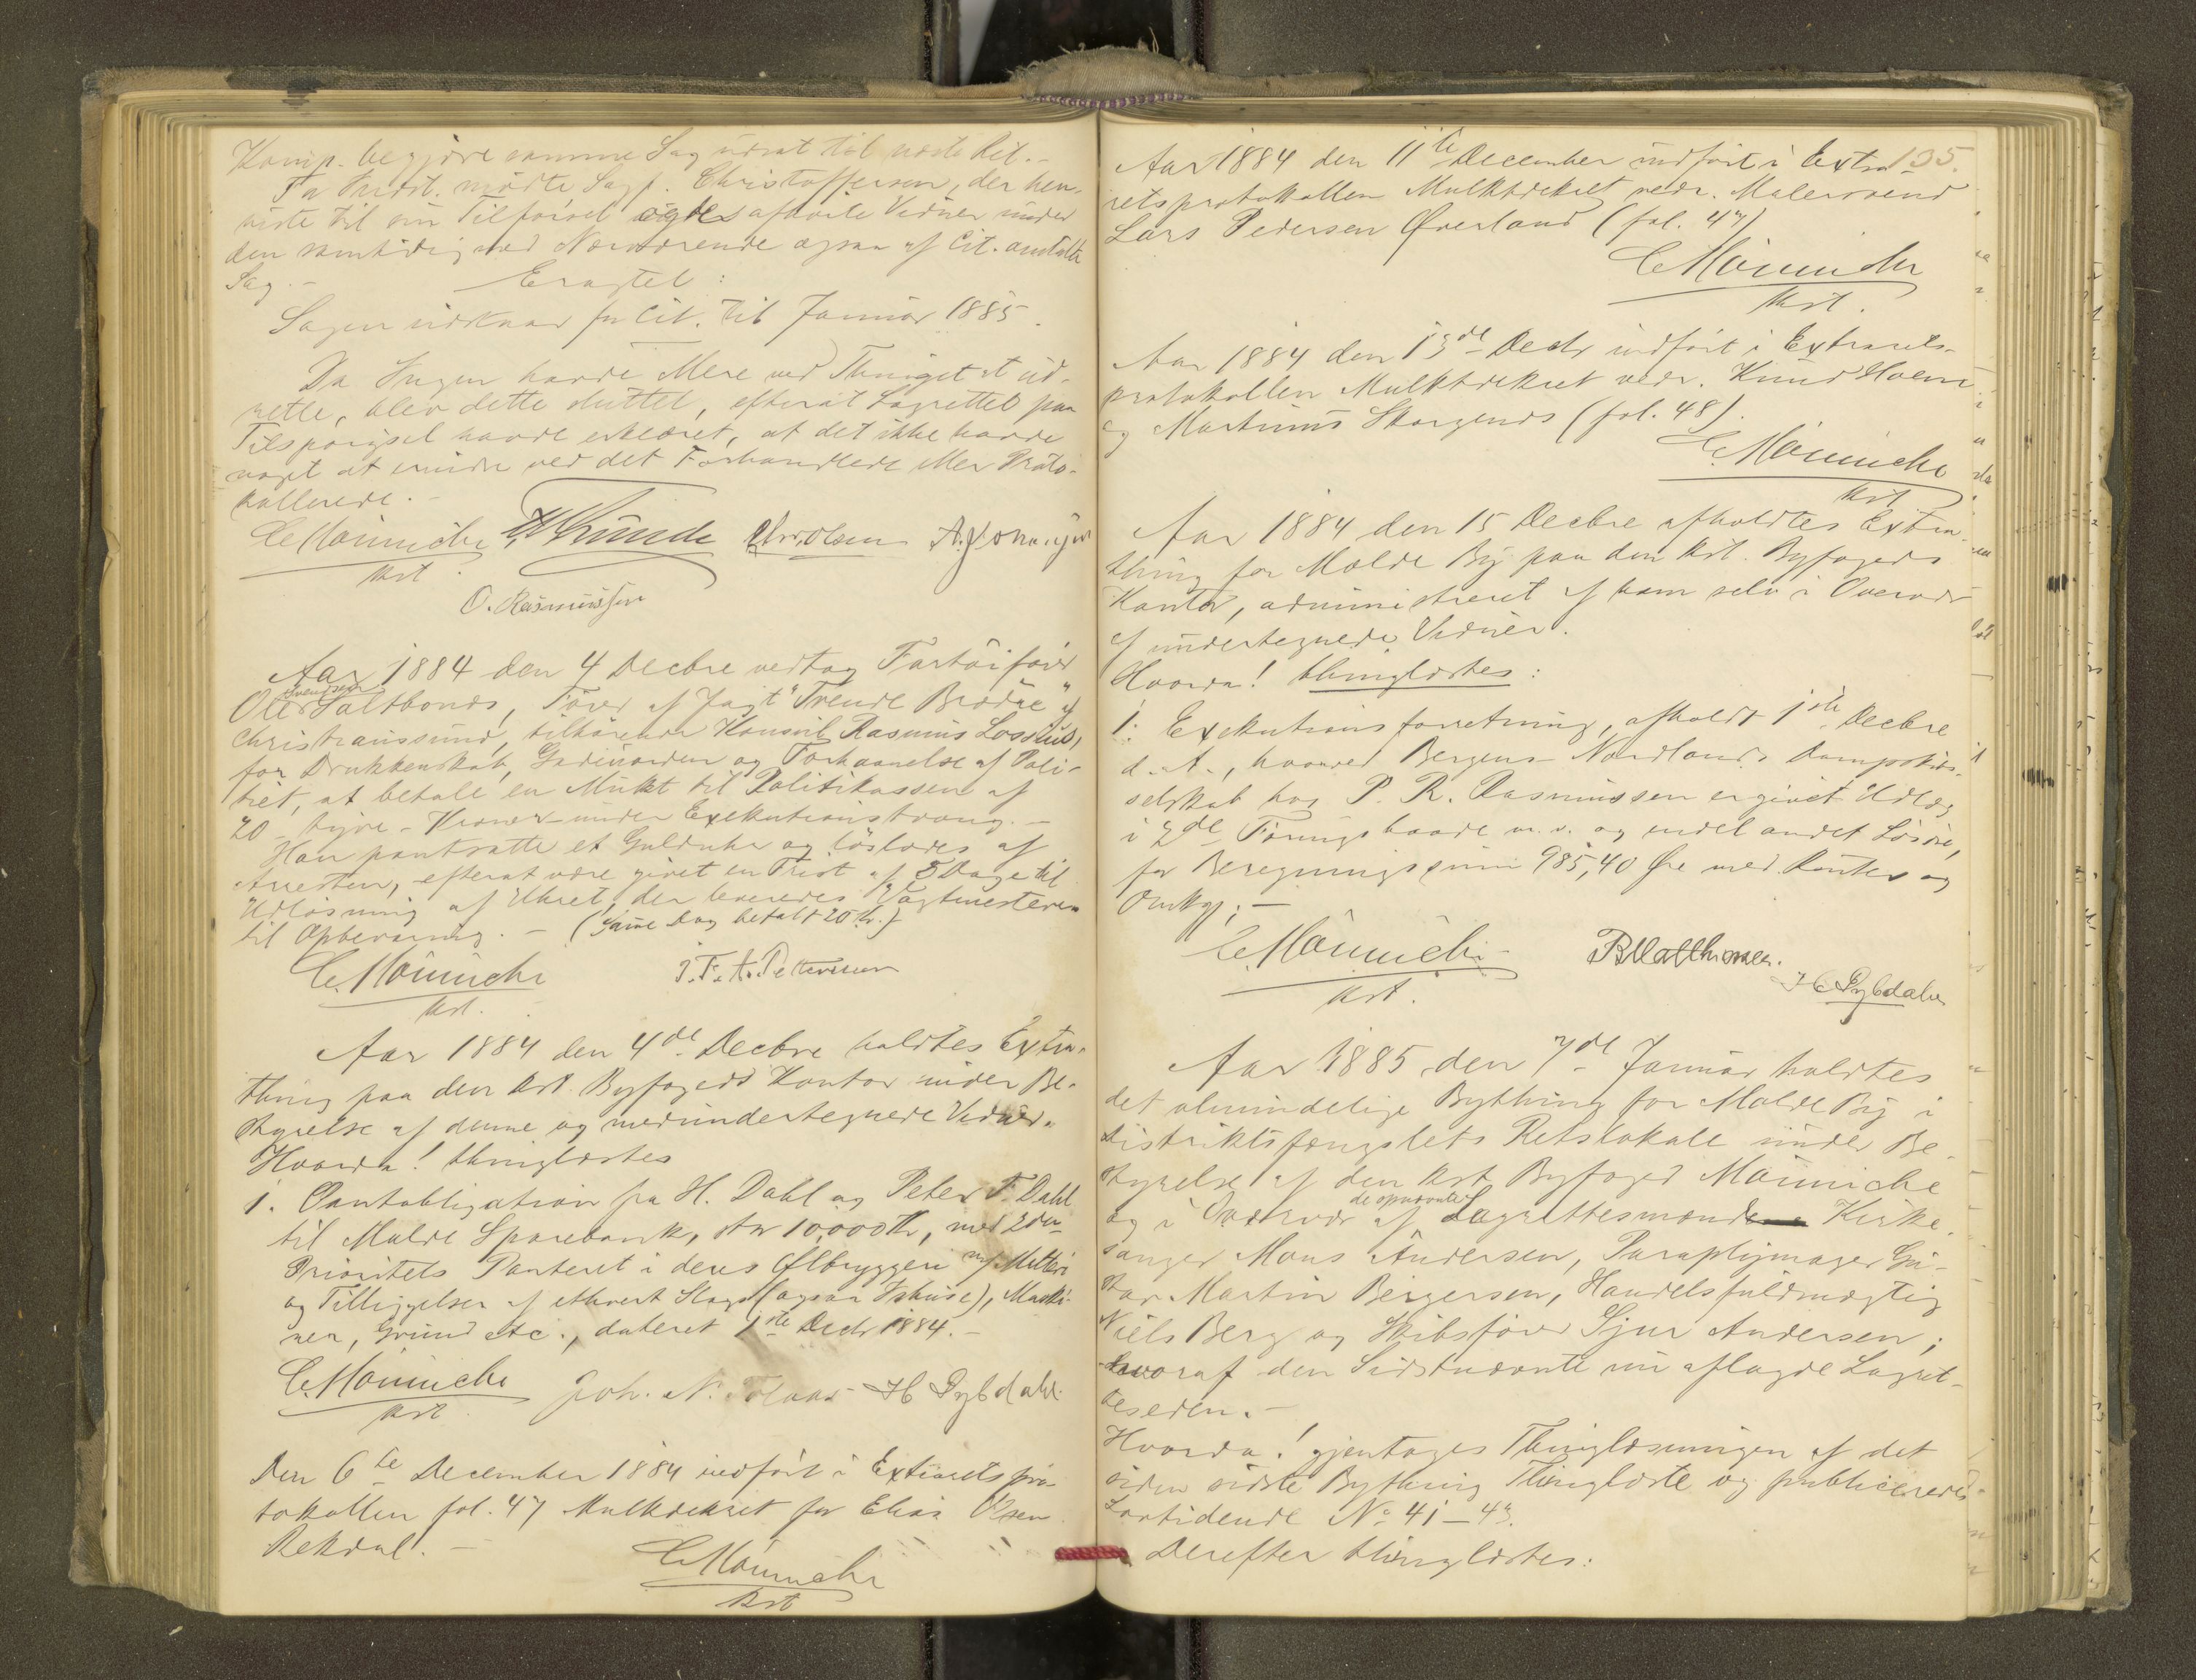 Komp. begjære samme Sag udsat til næste Ret.-
Fa Indst. mødte Sagf. Christoffersen, der hen-
viste til sin Tilførsel og de afhørte Vidner under
den samtidig med Nærværende ogsaa af Cit. anstalte
Sag.- Eragtet:
Sagen udstaar for Cit. til Januar 1885.
Da Ingen havde Mere ved Thinget at ud-
rette, blev dette sluttet, efterat Lagrettet paa
Tilspørgsel havde erklæret, at det ikke havde
noget at erindre ved det Forhandlede eller Proto-
kollerede.-
C. Mönniche Chr. Olsen
kst.
O. Rasmussen
Aar 1884 den 4 Decbre vedtog Fartøifører
Ole Svendsen Saltbonds, Fører af Jagt "Trende Brødre" af
Christianssund, tilhørende Konsul Rasmus Lossius,
for Drukkenskab, Gadeuorden og Forhaanelse af Poli-
tiet, at betale en Mulkt til Politikassen af
20 - tyve - Kroner under Exekutionstvang.-
Han pantsatte et Gulduhr og løslodes af
Arresten, efterat være givet en Frist af 3 Dage til
Udløsning af Uhret, der leveredes Vagtmesteren
til Opbevaring.- (Same Dag betalt 20 Kr.)
C. Mönniche J. F. A. Pettersen
kst.
Aar 1884 den 4de Decbre holdtes Extra-
thing paa den kst. Byfogeds Kontor under Be-
styrelse af denne og medundertegnede Vidner.
Hvorda! thinglæstes
1. Pantobligation fra H. Dahl og Peter F. Dahl
til Molde Sparebank, stor 10,000 Kr, med 2den
Prioritets Panteret i deres Ølbryggeri m/ Malteri
og Tilliggelser af ethvert Slags (ogsaa Ishuse), Maski-
ner, Grund etc., dateret 1ste Decbr 1884.-
C. Mönniche Joh. N. Tolaas H Dybdahl
kst.
Den 6te December 1884 indført i Extraretspro-
tokollen fol. 47 Mulktdekret for Elias Olsen
Rekdal.-
C. Mönniche
kst
135.
Aar 1884 den 11te December indført i Extra-
retsprotokollen Mulktdekret vedr. Malersvend
Lars Pedersen Øverland (fol. 47)
C. Mönniche
kst.
Aar 1884 den 13de Decbr indført i Extrarets-
protokollen Mulktdekret vedr. Knud Holm
og Martinus (fol. 48).
C. Mönniche
kst
Aar 1884 den 15 Decbre afholdtes Extra-
thing for Molde By paa den kst. Byfogeds
Kontor, administreret af ham selv i Overvær
af undertegnede Vidner.
Hvorda! thinglæstes:
1. Exekutionsforretning, afholdt 1ste Decbre
d. A., hvorved Bergens-Nordlands Dampskibs-
selskab hos P. R. Rasmussen er givet Udlæg
i 2de Føringsbaade m.v. og endel andet Løsøre,
for Beregningssum 985,40 Øre med Renter og
Omkg;-
C. Mönniche B Matthesen.
kst. H Dybdahl
Aar 1885 den 7de Januar holdtes
det almindelige Bything for Molde By i
Distriktsfængslets Retslokale under Be-
styrelse af den kst. Byfoged Mönniche
og i Overvær af de opnævnte Lagrettesmænd Kirke-
sanger Mons Andersen, Paraplymager Gu-
stav Martin Beigersen, Handelsfuldmægtig
Niels Berg og Skibsfører Sjur Andersen;
hvoraf den Sidstnævnte nu aflagde Lagret-
teseden.-
Hvorda! gjentoges Thinglæsningen af det
siden sidste Bything Thinglæste og publiceredes
Lovtidende No 41-43.
Derefter thinglæstes: